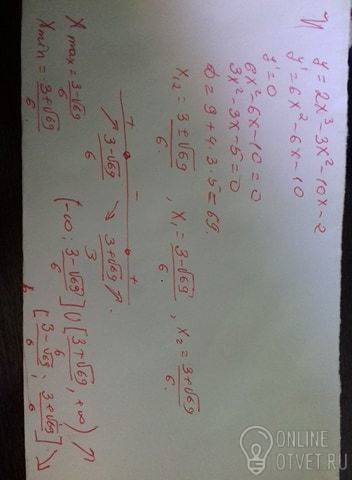 y = 2x³-3x²-10x-2
y' = 6x²-6x-10
y'=0
6x²-6x-10=0
3x²-3x-5=0
D = 9+4·3·5=69.
X₁,₂ = 3±√69/6, X₁ = 3-√69/6, X₂ = 3+√69/6.
+ - +
↗ 3-√69/6 ↘ 3+√69/3 ↗
X max = 3-√69/6
X min = 3+√69/6
(-∞; 3-√69/6] U [3+√69/6, +∞) ↗
[3-√69/6; 3+√69/6] ↘
ONLINE
OTVET.RU